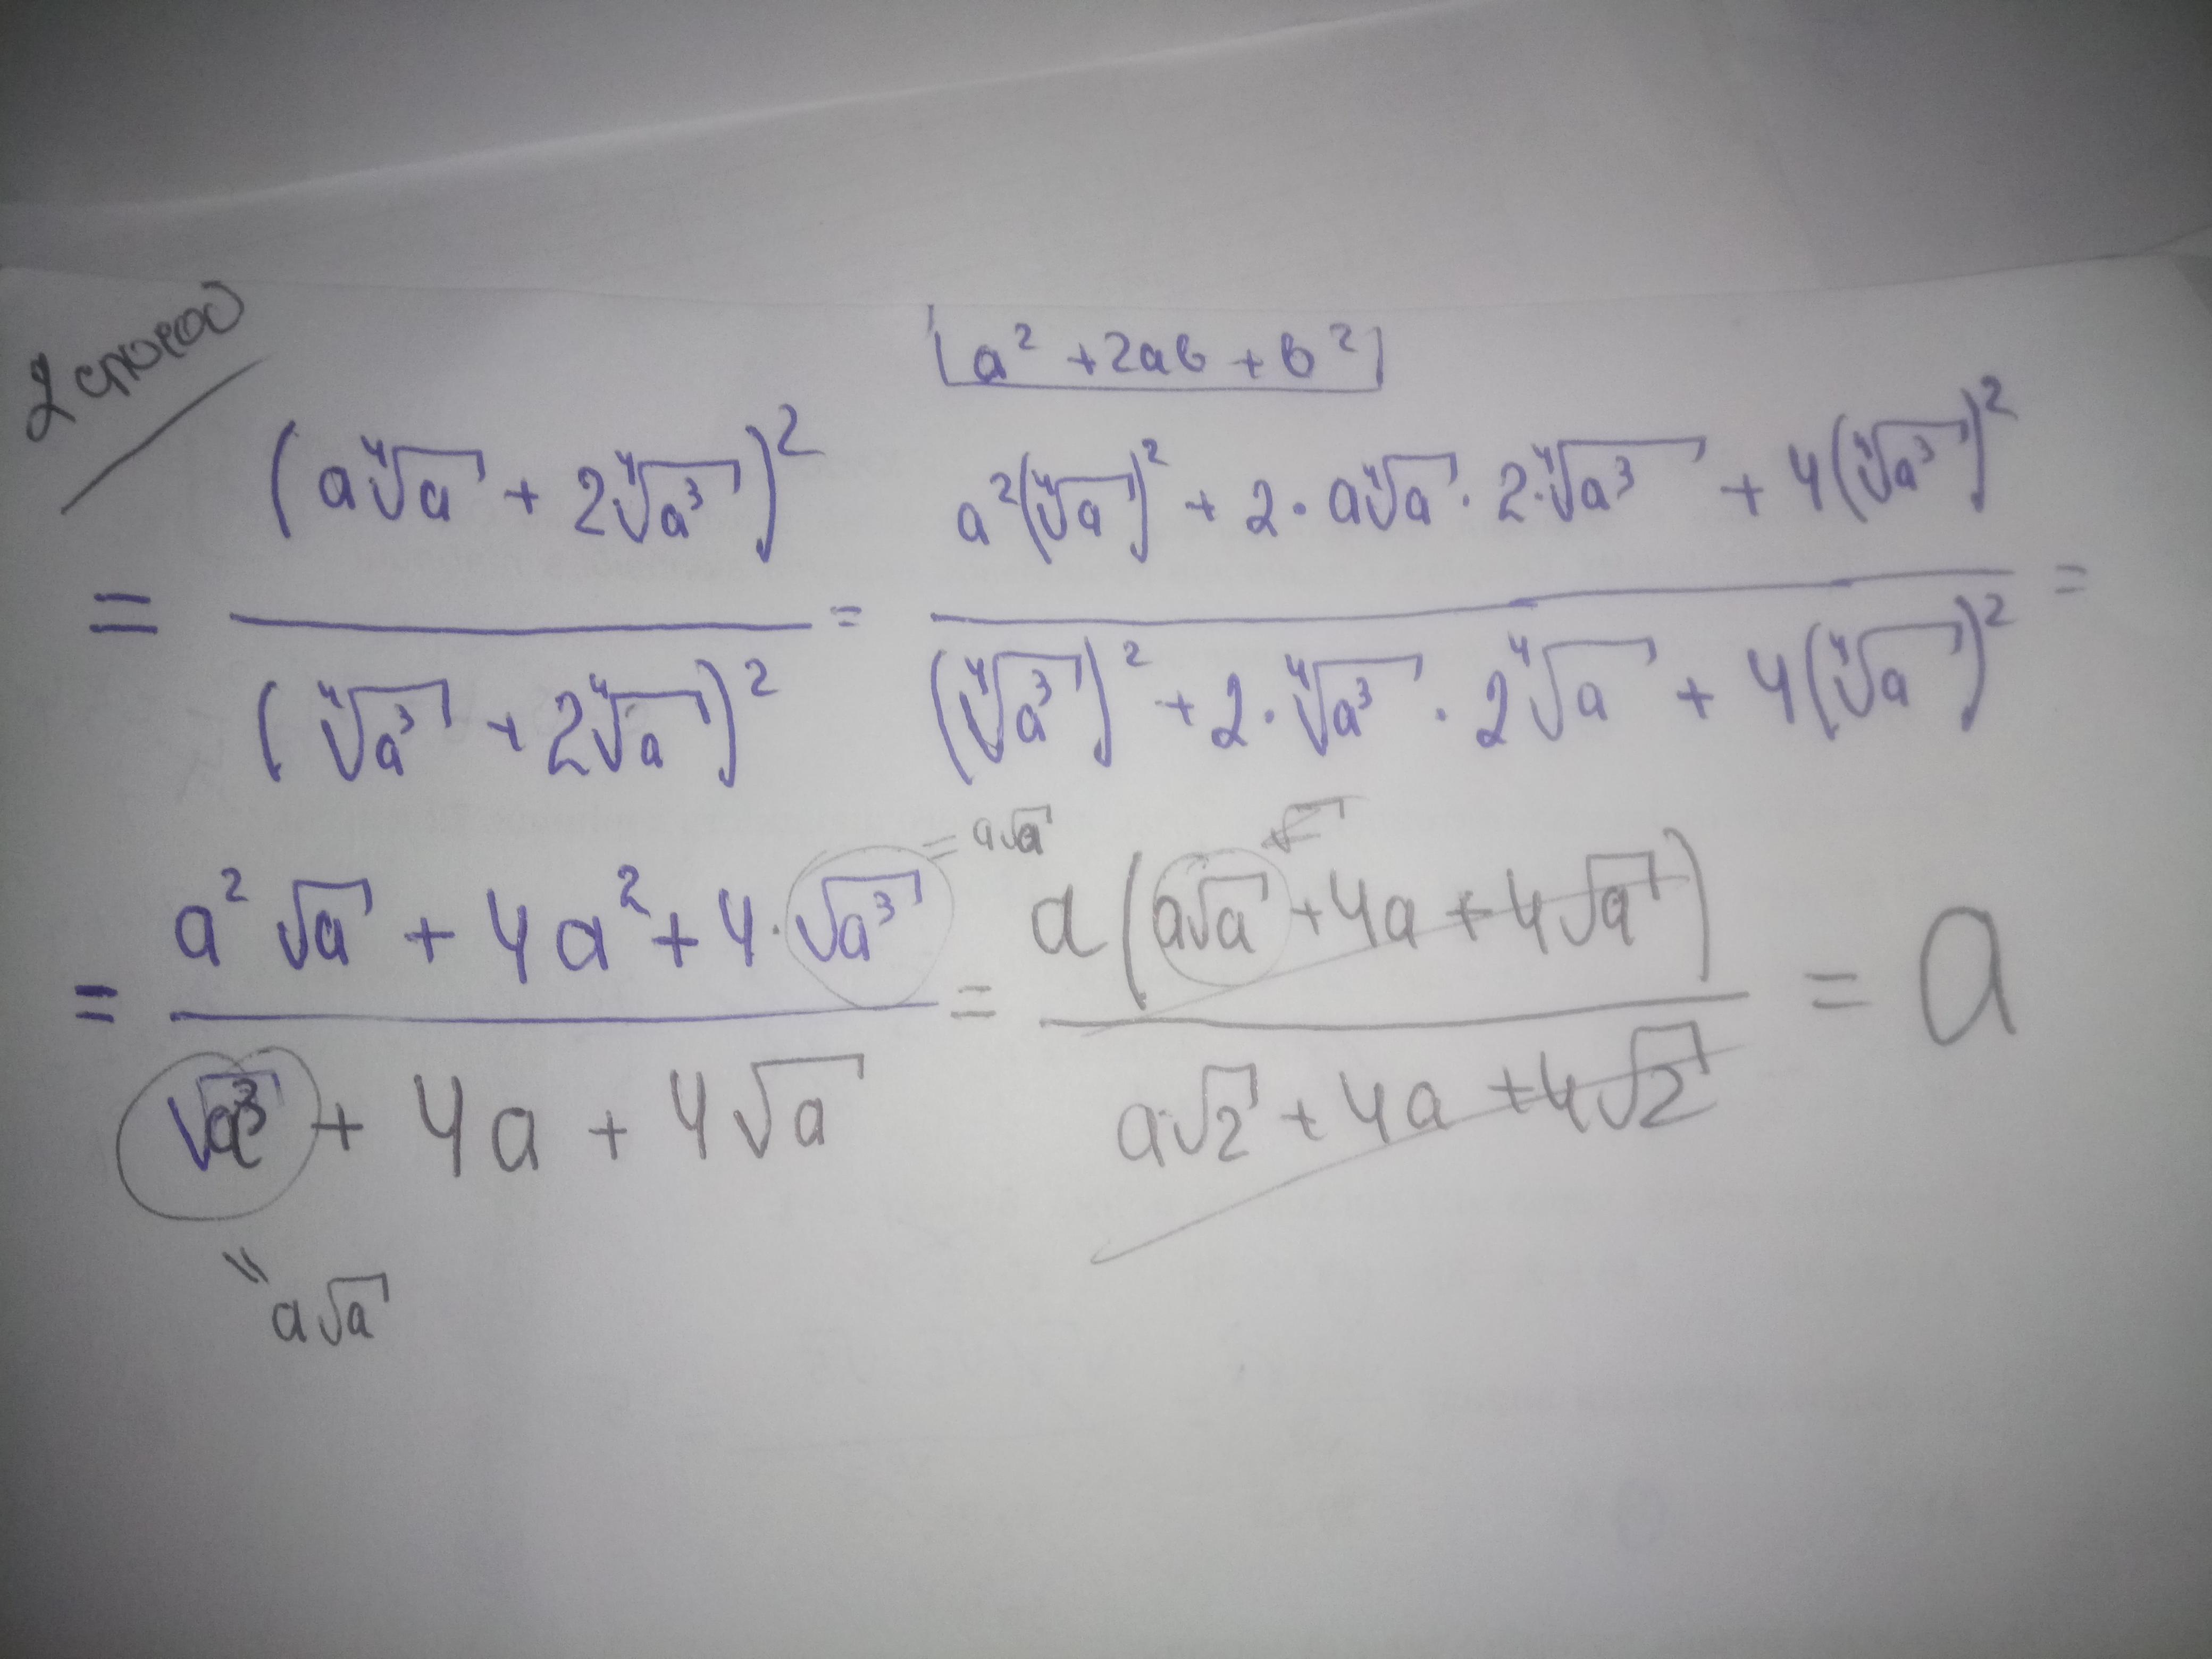 2 способ
[a² + 2ab + b²]
= (a∜a + 2∜a³)² / (∜a³ + 2∜a)² = (a²(∜a)² + 2·a∜a·2·∜a³ + 4(∜a³)²) / ((∜a³)² + 2·∜a³·2∜a + 4(∜a)²) =
= a√a √
= (a²√a + 4a² + 4·√a³) / (√a³ + 4a + 4√a) = a(a√a + 4a + 4√a) / (a√2 + 4a + 4√2) = a
= a√a